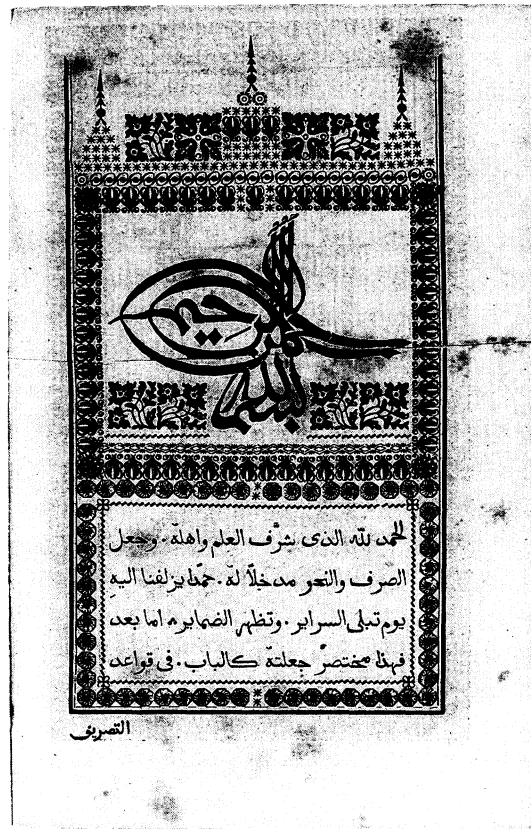 بسم الله الرحمن الرحيم
الحمد لله الذى شرَّف العلم واهلهُ. وجعل
الصرف والنحو مدخلًا لهُ. حمدًا يزلفنا اليهِ
يوم تبلى السراير. وتظهر الضماير* اما بعد
فهذا مختصرٌ جعلتهُ كالباب. فى قواعد
التصريف